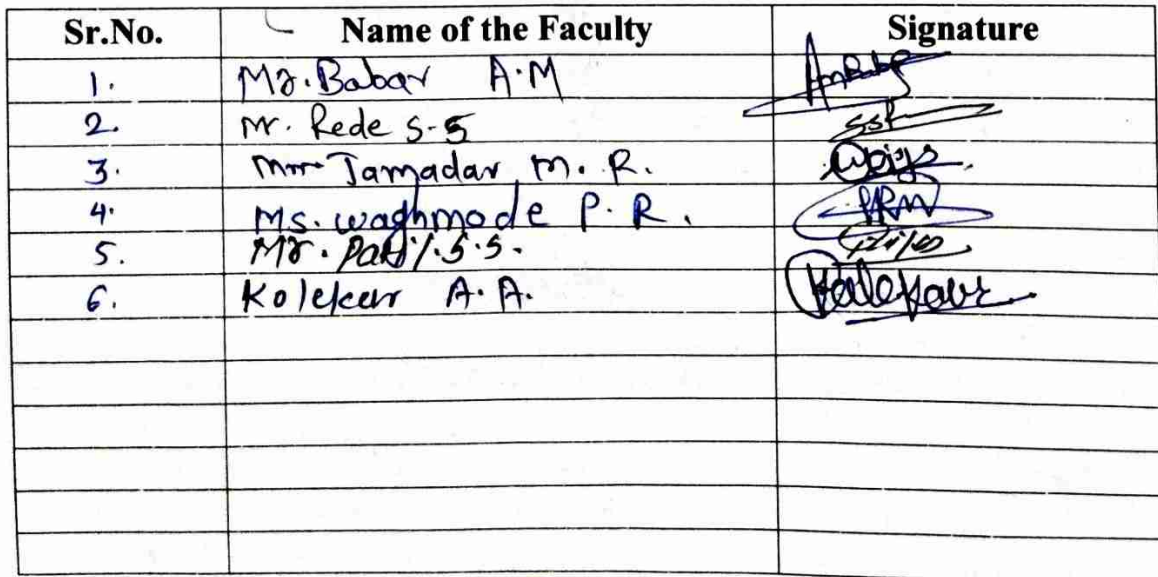 Sr.No. Name of the Faculty Signature
1. Mr. Babar A.M
2. Mr. Rede S-S
3. Jamadar M. R.
4. Ms. waghmode P. R. PRM
5. Mr. Patil.S.S.
6. Kolekar A.A.